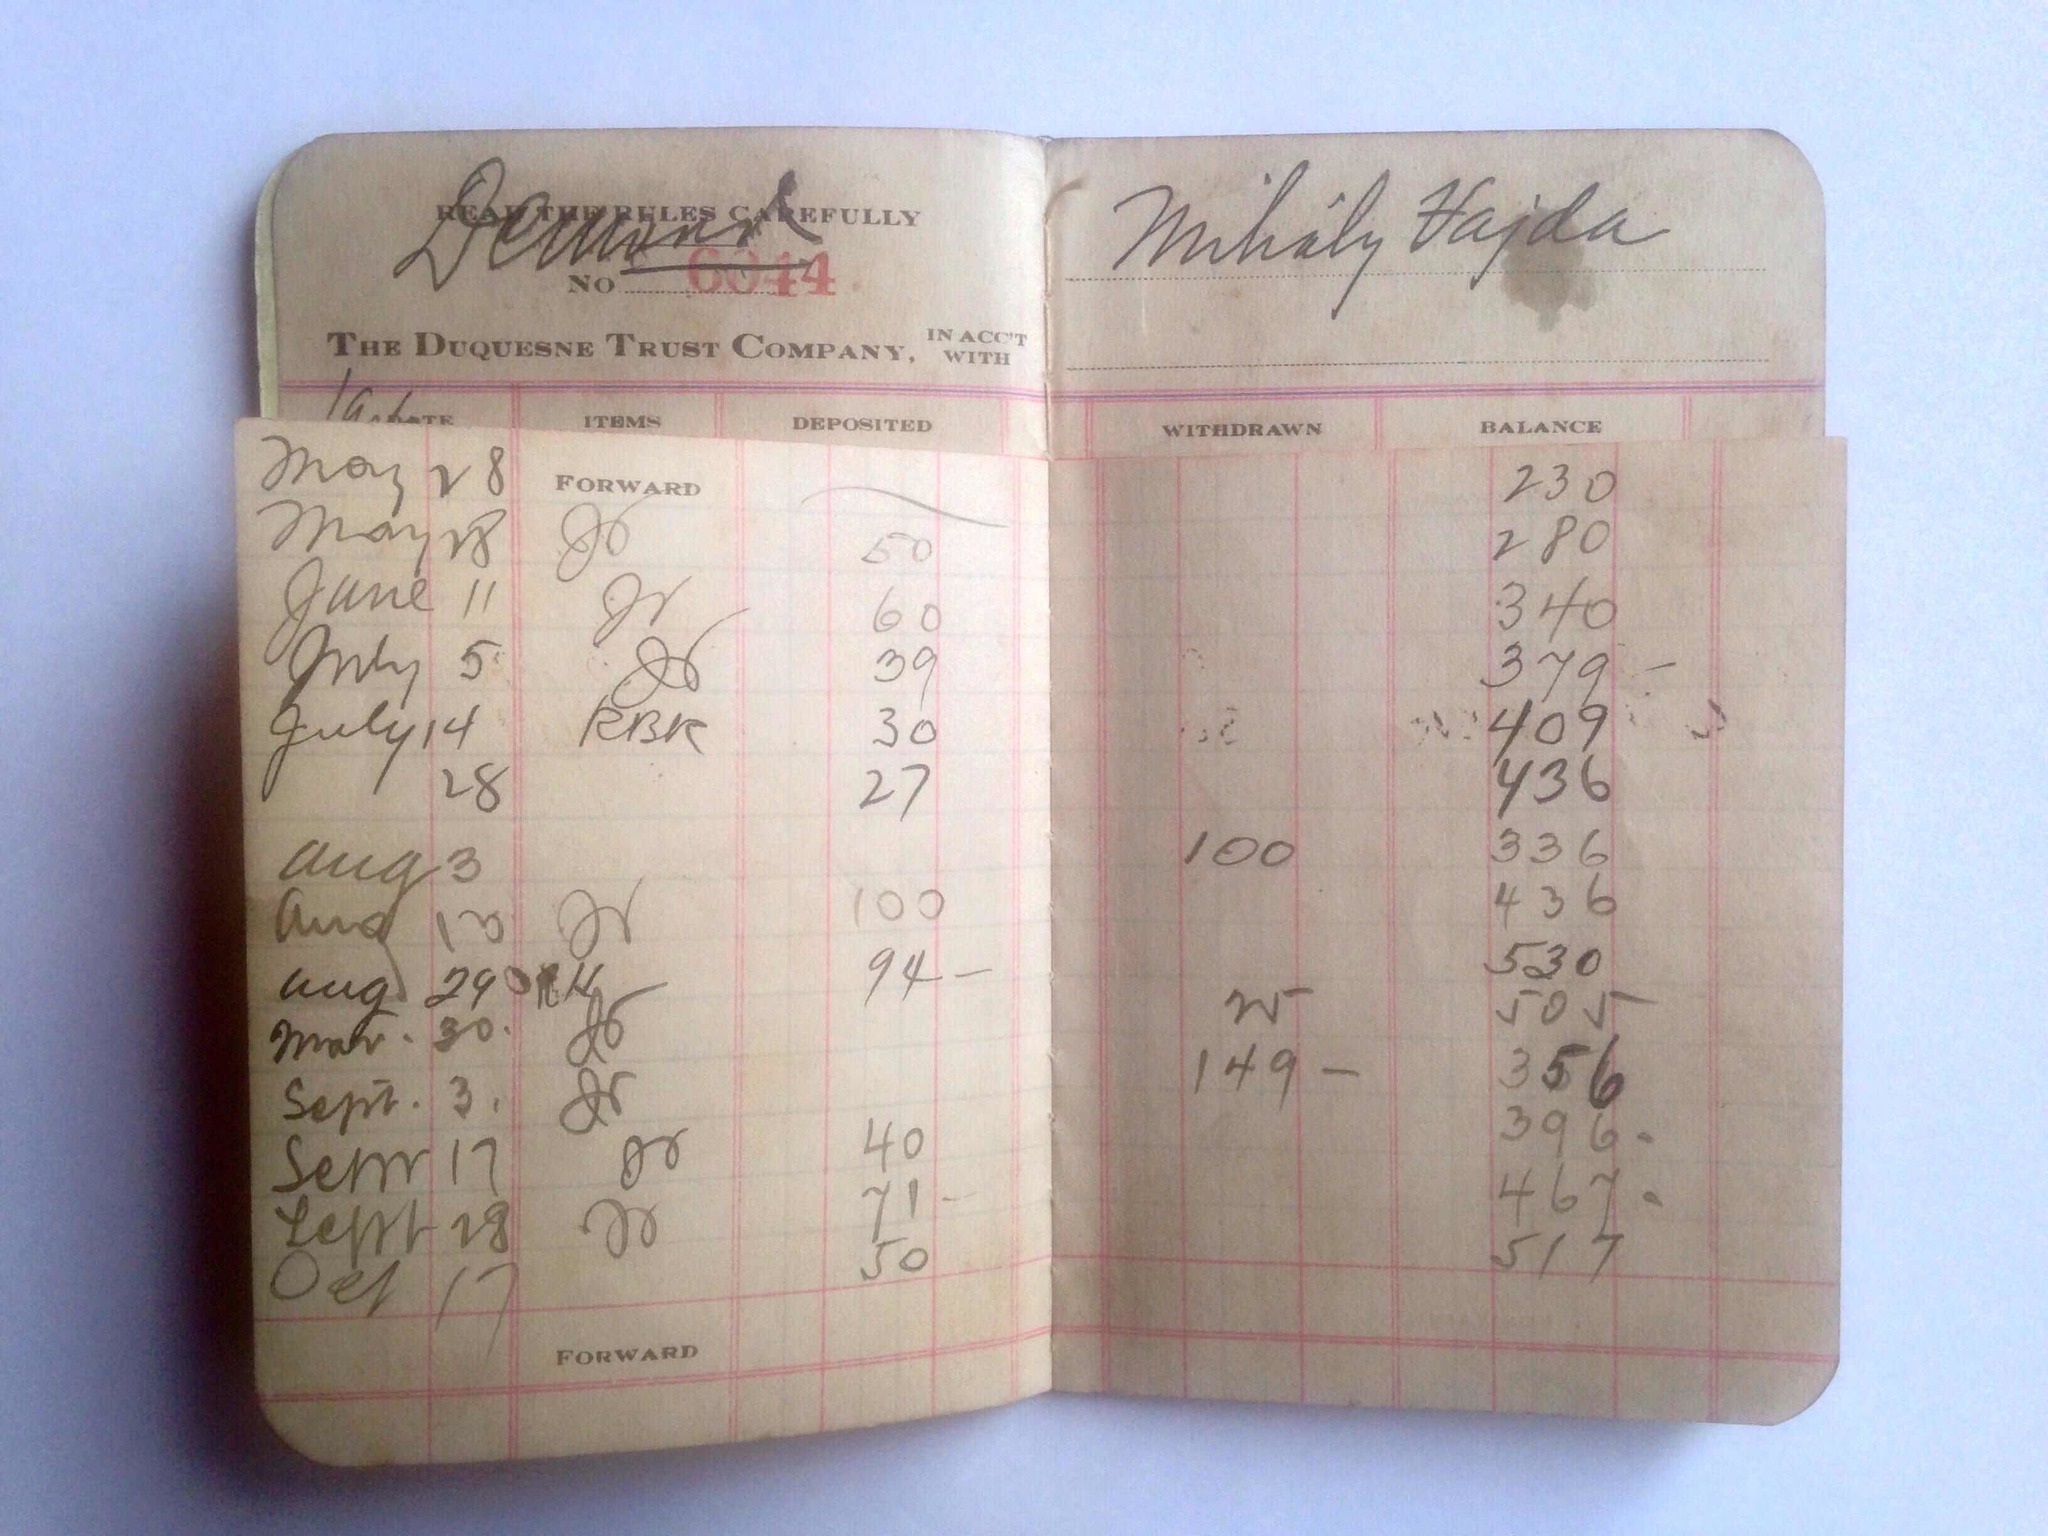 Demand
READ THE RULES CAREFULLY
NO 6044
THE DUQUESNE TRUST COMPANY, IN ACC'T WITH
Mihály Vajda
DATE ITEMS DEPOSITED WITHDRAWN BALANCE
May 28 FORWARD 230
May 28 Jr 50 280
June 11 Jr 60 340
July 5 Jr 39 379 –
July 14 RBK 30 409
28 27 436
Aug 3 100 336
Aug 10 Jr 100 436
Aug. 29 94 – 530
Mar. 30. Jr 25 505
Sept. 3. Jr 149 – 356
Sept 17 Jr 40 396.
Sept 28 Jr 71 – 467.
Oct 17 50 517
FORWARD